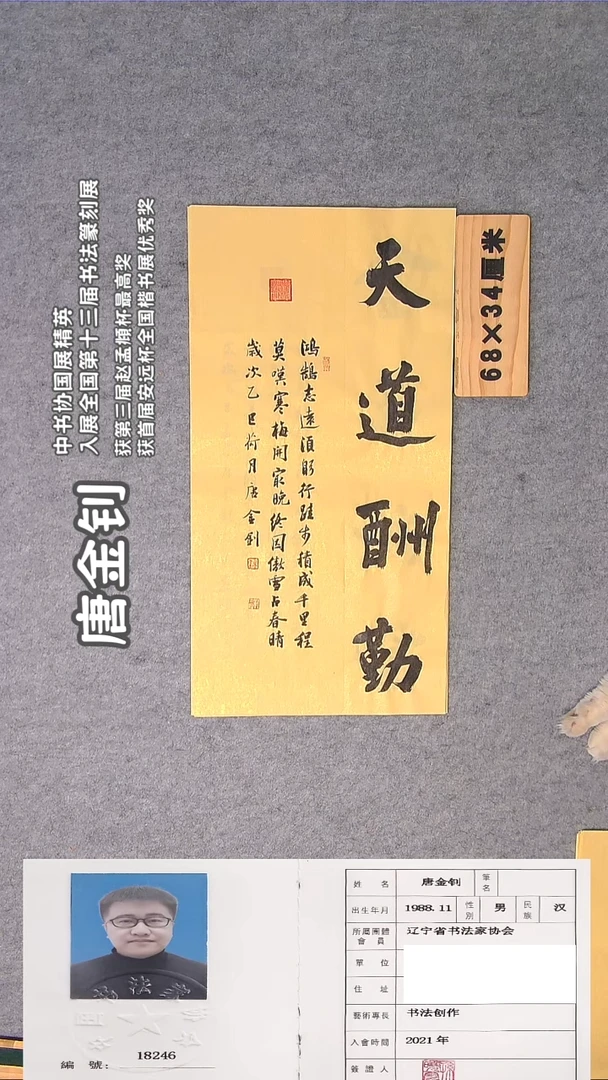 中书协国展精英
入展全国第十三届书法篆刻展
获第三届赵孟頫杯最高奖
获首届安远杯全国楷书展优秀奖
唐金钊
68×34厘米
天道酬勤
鸿鹄志远须躬行跬步积成千里程
莫嘆寒梅開寂晚终因傲雪占春晴
歲次乙巳荷月唐金釗
姓 名 唐金钊 筆名
出生年月 1988.11 性別 男 民族 汉
所屬團體會員 辽宁省书法家协会
單 位
住 址
藝術專長 书法创作
入會時間 2021年
簽證人
編 號: 18246